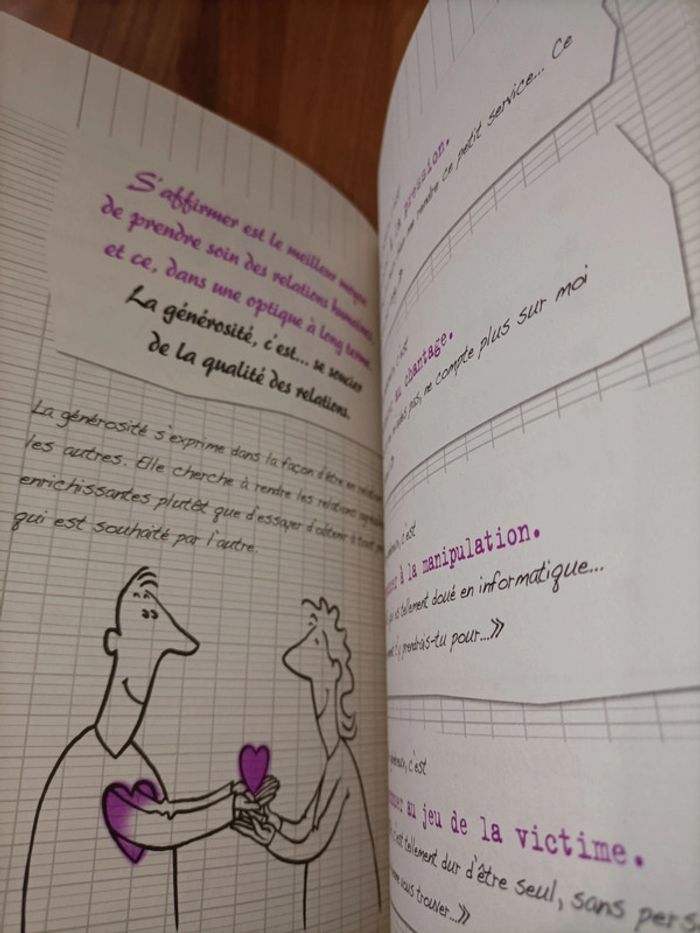 S'affirmer est le meilleur moyen
de prendre soin des relations humaines,
et ce, dans une optique à long terme.
La générosité, c'est... se soucier
de la qualité des relations.
La générosité s'exprime dans la façon d'être en relation
les autres. Elle cherche à rendre les relations
enrichissantes plutôt que d'essayer d'obtenir à tout
qui est souhaité par l'autre.
à la pression.
rendre ce petit service... Ce
c'est
au chantage.
pas, ne compte plus sur moi
c'est
à la manipulation.
tellement doué en informatique...
t'y prendrais-tu pour...»
c'est
au jeu de la victime.
c'est tellement dur d'être seul, sans pers
vous trouver...»